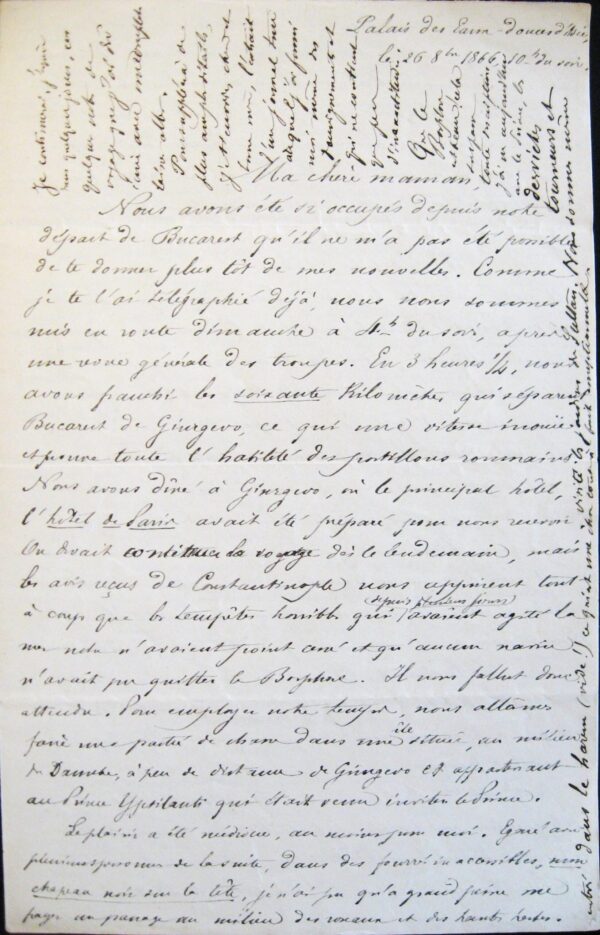 Palais des Eaux-douces d'Asie,
le 26 8bre 1866, 10h du soir.
Ma chère maman,
Nous avons été si occupés depuis notre
départ de Bucarest qu'il ne m'a pas été possible
de te donner plus tôt de mes nouvelles. Comme
je te l'ai télégraphié déjà, nous nous sommes
mis en route dimanche à 4h du soir, après
une revue générale des troupes. En 3 heures 1/4, nous
avons franchi les soixante kilomètres qui séparent
Bucarest de Giurgevo, ce qui une vitesse inouïe
et prouve toute l'habileté des postillons roumains.
Nous avons dîné à Giurgevo, où le principal hôtel,
l'hôtel de Paris avait été préparé pour nous recevoir.
On devait continuer le voyage dès le lendemain, mais
les avis reçus de Constantinople nous apprirent tout
à coup que les tempêtes horribles qui (depuis plusieurs jours) avaient agité la
mer noire n'avaient point cessé et qu'aucun navire
n'avait pu quitter le Bosphore. Il nous fallut donc
attendre. Pour employer notre temps, nous allâmes
faire une partie de chasse dans une île située au milieu
du Danube, à peu de distance de Giurgevo et appartenant
au Prince Ypsilanti qui était venu inviter le Prince.
Le plaisir a été médiocre, au moins pour moi. Egaré avec
plusieurs personnes de la suite, dans des fourrés inaccessibles, mon
chapeau noir sur la tête, je n'ai pu qu'à grand peine me
frayer un passage au milieu des roseaux et des hautes herbes.
Je continuerai, j'espère
dans quelques jours, en
quelque sorte de
voyage
Pour suppléer à de
plus amples détails,
l'extrait
d'un journal turc
qui ne contient
que peu
d'inexactitudes.
Que le
Bosphore
est beau
j'ai vu aujourd'hui
derviches
tourneurs et
visité les jardins du Sultan. Nous sommes même
entrés dans le harem (vide!) ce qui est une chose tout à fait exceptionnelle.